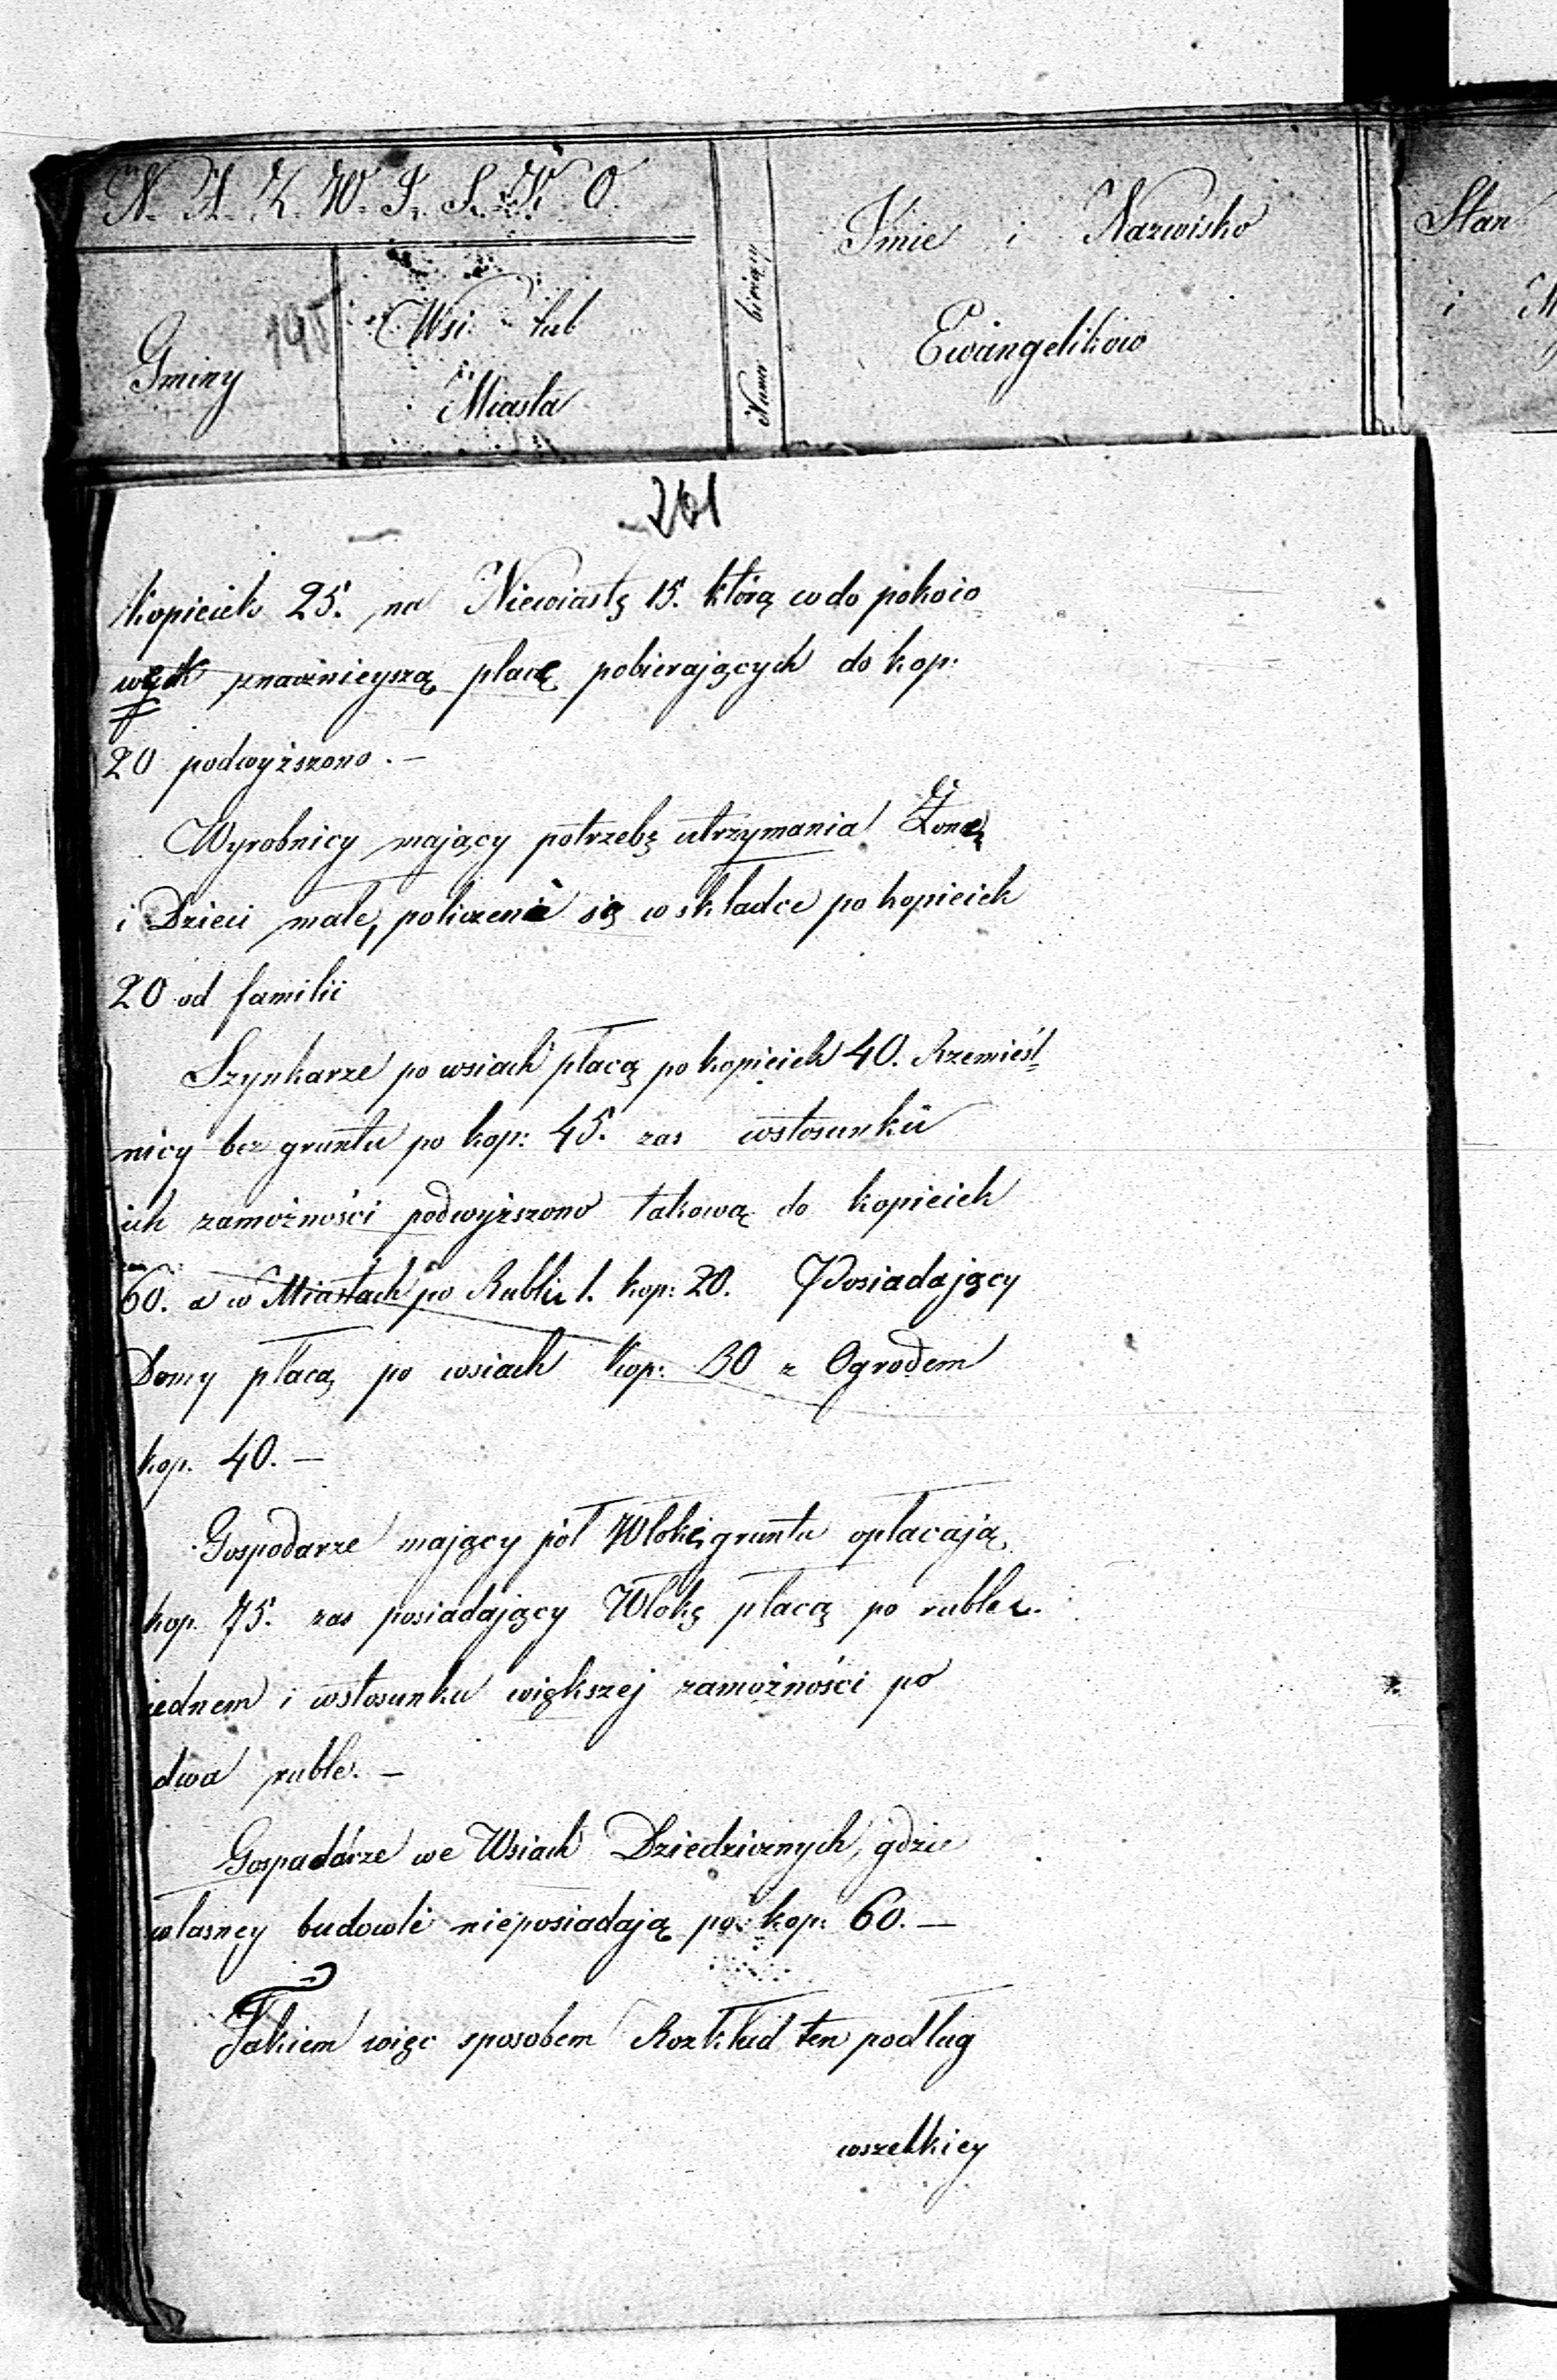 N. A. Z. W. I. S. K. O.
Gminy
Wsi lub
Miasta
Numer bieżący
Imie i Nazwisko
Ewangelikow
Stan
i
201
kopieiek 25. na Niewiastę 15. którą co do pokoio
węk znacznieyszą płacę pobierających do kop:
20 podwyższono. —
Wyrobnicy mający potrzebę utrzymania Żonę
i Dzieci małe, policzeni są w składce po kopieiek
20 od familii
Szynkarze po wsiach płacą po kopieiek 40. Rzemieśl=
nicy bez gruntu po kop: 45. zas wstosunku
ich zamożności podwyższono takową do kopieiek
60. a w Miastach po Rublu 1. kop: 20. Posiadający
Domy płacą po wsiach kop: 30 z Ogrodem
kop. 40. —
Gospodarze mający pół Włoki gruntu opłacają
kop. 75. zas posiadający Włokę płacą po rublu
iednem i wstosunku większej zamożności po
dwa ruble. —
Gospodárze we Wsiach Dziedzicznych, gdzie
własney budowli nieposiadają po kop: 60. —
Takiem więc sposobem Rozkład ten podług
wszelkiey